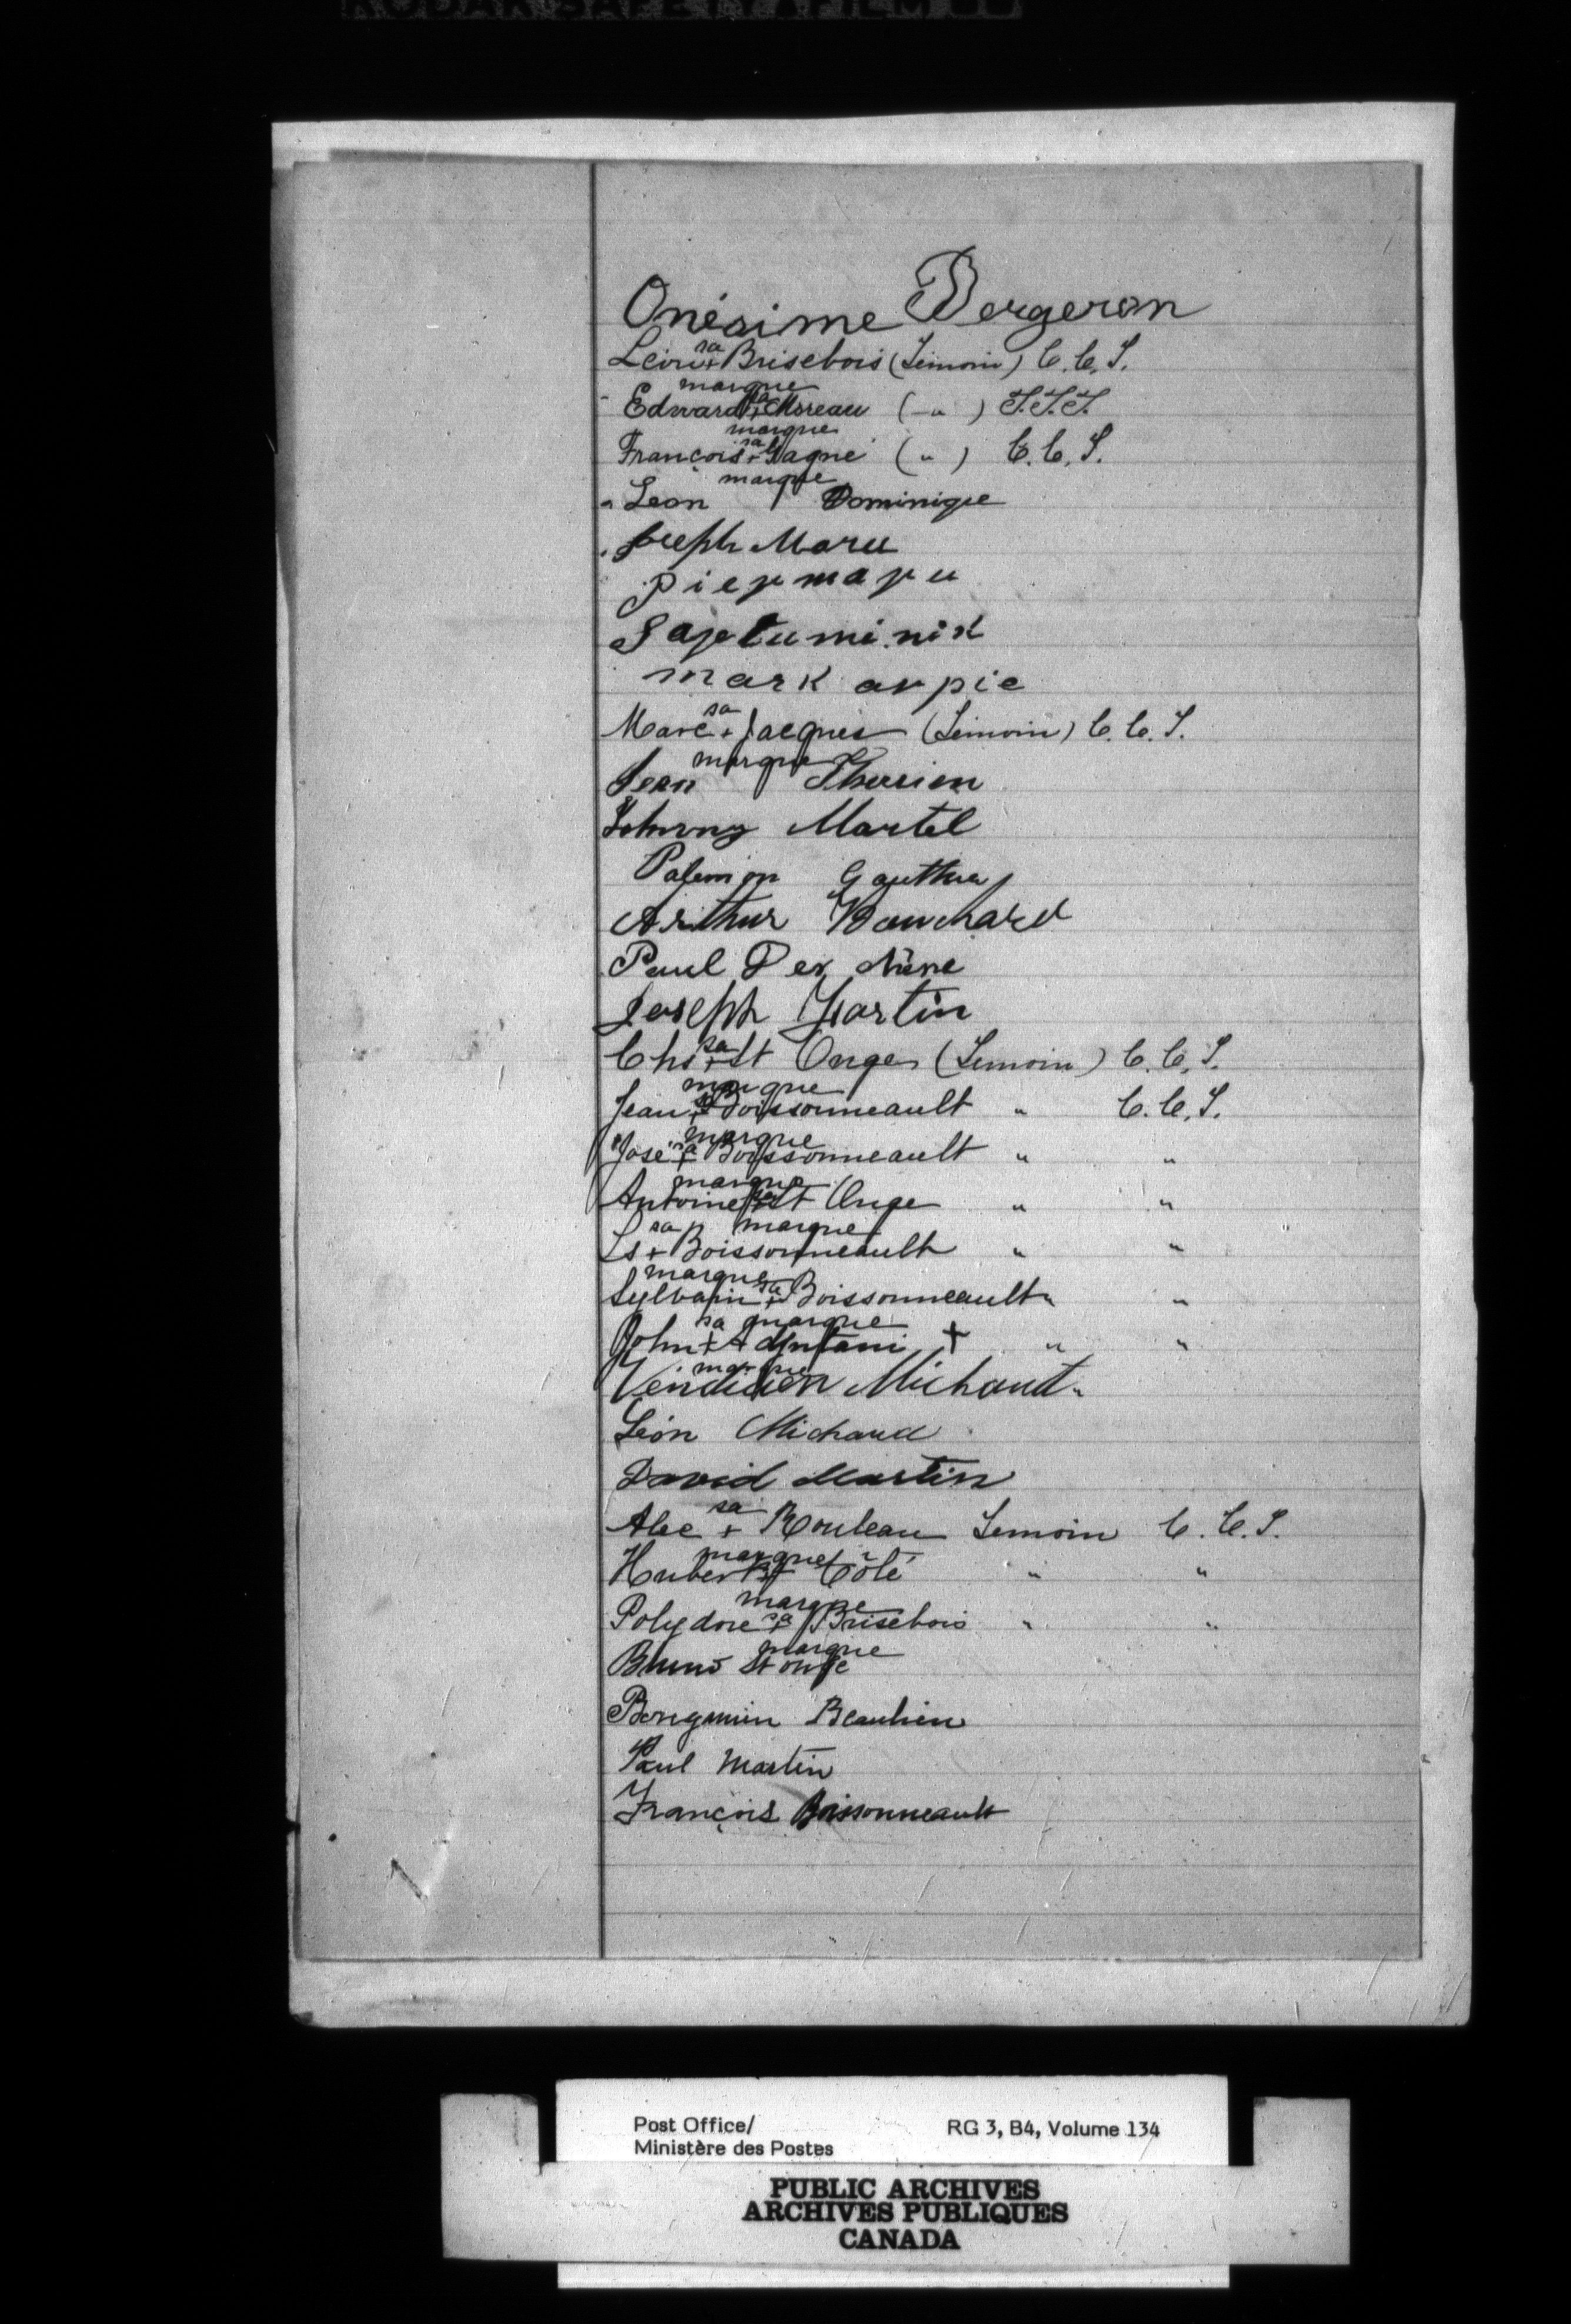 KODAK SAFETY FILM
Onésime Bergeron
sa
Brisebois (Témoin) C. C. S.
marque
sa
Edward + Moreau ( " ) T.T.T.
marque
sa
François + Gagné ( " ) C. C. S.
marque
Leon Dominique
Joseph
sa
mark
sa
Marc + Jacques (Témoin) C. C. S.
marque
Jean Therien
Johnny Martel
Arthur Bouchard
Paul
Joseph Martin
sa
Chs + St Onge (Temoin) C. C. S.
marque
sa
Jean + Boissonneault " C. C. S.
marque
"José" sa + Boissonneault " "
marque
sa
Antoine + St Onge " "
sa marque
Ls + Boissonneault " "
marque
sa
Sylvain + Boissonneault " "
sa marque
John + + " "
marque
Michaud
Léon Michaud
David Martin
sa
Alec + Rouleau Temoin C. C. S.
marque
Hubert + Côté " "
marque
Polydore sa + Brisebois " "
marque
Bruno St onge
Bengamin Beaulieu
Paul Martin
François Boissonneault
Post Office/ RG 3, B4, Volume 134
Ministère des Postes
PUBLIC ARCHIVES
ARCHIVES PUBLIQUES
CANADA